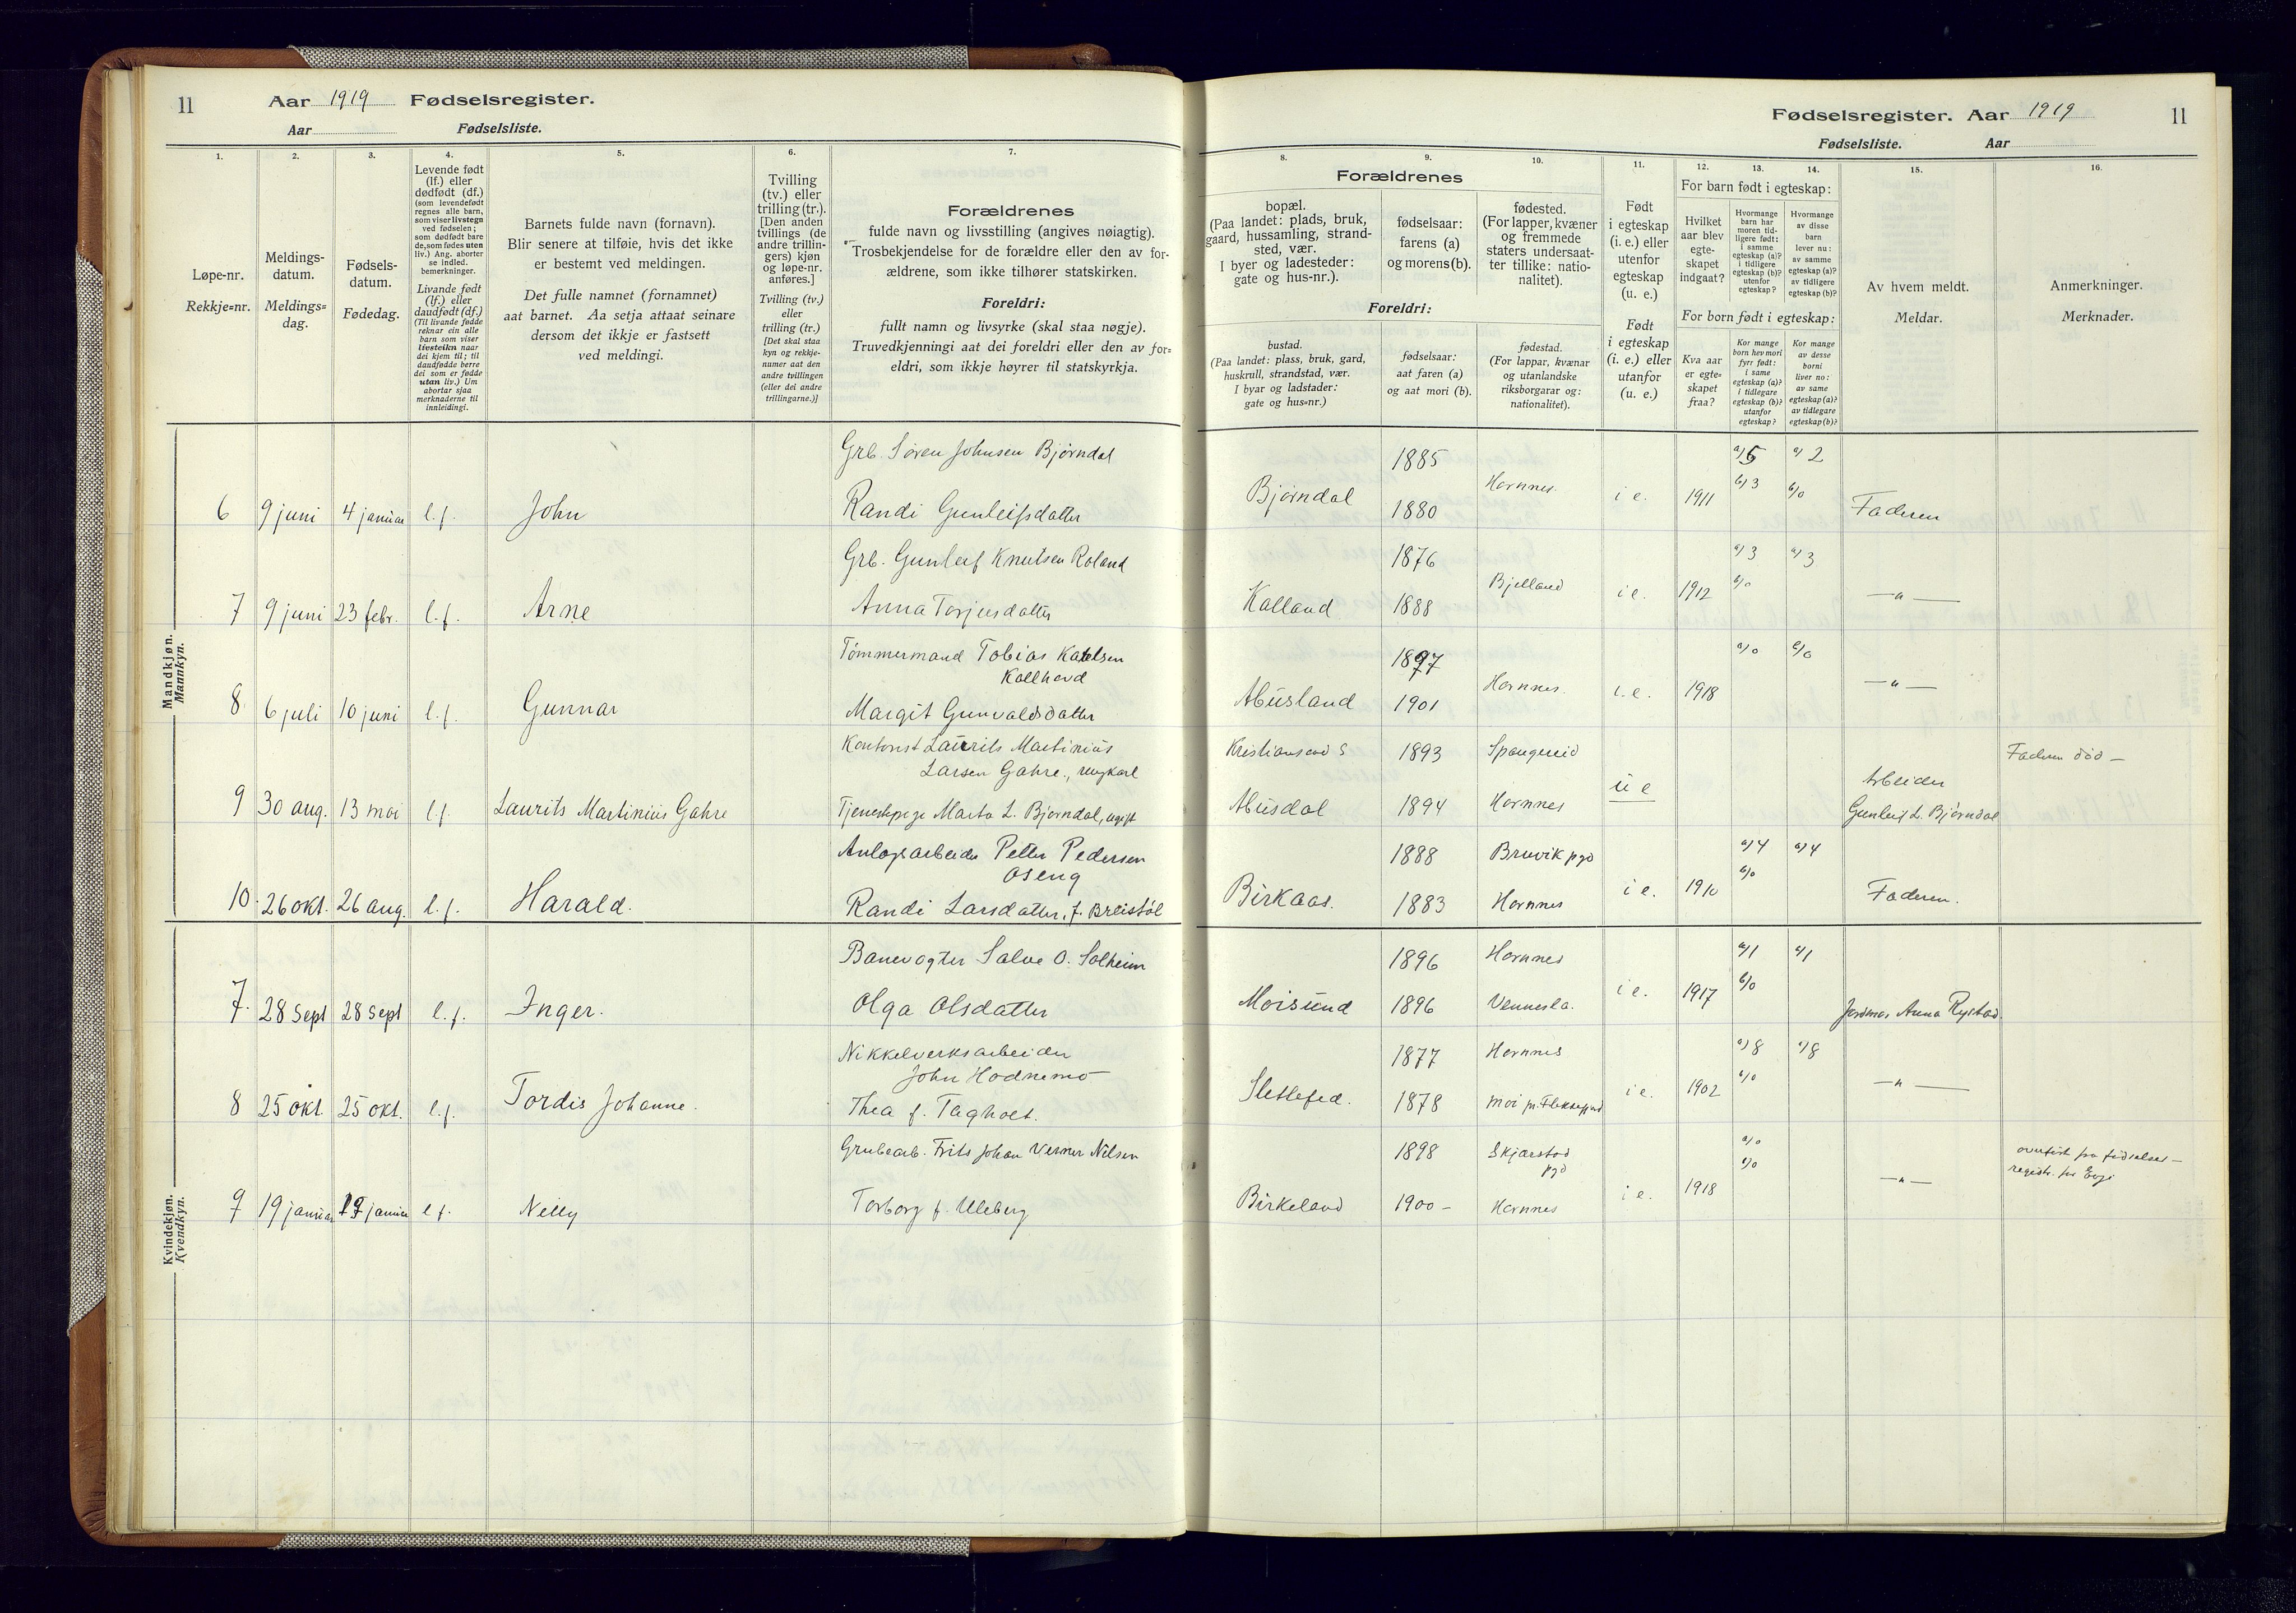 11 Aar 1919 Fødselsregister.
Aar Fødselsliste.
1. 2. 3. 4. 5. 6. 7.
Løpe-nr.
Rekkje=nr.
Meldings-
datum.
Meldings=
dag.
Fødsels-
datum.
Fødedag.
Levende født
(lf.) eller
dødfødt (df.)
(som levendefødt
regnes alle barn,
som viser livstegn
ved fødselen;
som dødfødt bare
de, som fødes uten
liv.) Ang. aborter
se indled.
bemerkninger.
Livande født
(lf.) eller
daudfødt (df.)
(Til livande fødde
reknar ein alle
barn som viser
livsteikn naar
dei kjem til; til
daudfødde berre
dei som er fødde
utan liv.) Um
abortar sjaa
merknaderne til
innleidingi.
Barnets fulde navn (fornavn).
Blir senere at tilføie, hvis det ikke
er bestemt ved meldingen.
Det fulle namnet (fornamnet)
aat barnet. Aa setja attaat seinare
dersom det ikkje er fastsett
ved meldingi.
Tvilling
(tv.) eller
trilling (tr.).
[Den anden
tvillings (de
andre trillin-
gers) kjøn
og løpe-nr.
anføres.]
Tvilling (tv.)
eller
trilling (tr.)
[Det skal staa
kyn og rekkje-
numer aat den
andre tvillingen
(eller dei andre
trillingarne.)]
Forældrenes
fulde navn og livsstilling (angives nøiagtig).
Trosbekjendelse for de forældre eller den av for-
ældrene, som ikke tilhører statskirken.
Foreldri:
fullt namn og livsyrke (skal staa nøgje).
Truvedkjenningi aat dei foreldri eller den av for=
eldri, som ikkje høyrer til statskyrkja.
Mandkjøn.
Mannkyn.
Grb. Søren Johnsen Bjørndal
6 9 juni 4 januar l.f. John Randi Gunleifsdatter
Grb. Gunleif Knutsen Roland
7 9 juni 23 febr. l.f. Arne Anna Torjusdatter
Tømmermand Tobias
8 6 juli 10 juni l.f. Gunnar Margit Gunvaldsdatter
Kontorist Laurits Martinius
Larsen Gahre, ungkarl
9 30 aug. 13 mai l.f. Laurits Martinius Gahre Tjenestepige Marta L. Bjørndal, ugift
Anlægsarbeider Petter Pedersen
Oseng
10 26 okt. 26 aug. l.f. Harald. Randi Larsdatter, f. Breistøl
Kvindekjøn.
Kvendkyn.
Banevogter Salve O. Solheim
7. 28 Sept 28 Sept l.f. Inger. Olga Olsdatter
Nikkelverksarbeider
John Hodnemo
8 25 okt. 25 okt. l.f. Tordis Johanne. Thea f. Tagholt.
Grubearb. Frits Johan Verner Nilsen
9 19 januar januar l f. Nelly Torborg f. Uleberg
Fødselsregister. Aar 1919 11
Fødselsliste. Aar
8. 9. 10. 11. 12. 13. 14. 15. 16.
Forældrenes
bopæl.
(Paa landet: plads, bruk,
gaard, hussamling, strand-
sted, vær.
I byer og ladesteder:
gate og hus-nr.).
fødselsaar:
farens (a)
og morens (b).
fødested.
(For lapper, kvæner
og fremmede
staters undersaat-
ter tillike: natio-
nalitet).
Foreldri:
bustad.
(Paa landet: plass, bruk, gard,
huskrull, strandstad, vær.
I byar og ladstader:
gate og hus=nr.)
fødselsaar:
aat faren (a)
og aat mori (b).
fødestad.
(For lappar, kvænar
og utanlandske
riksborgarar og:
nationalitet).
Født
i egteskap
(i. e.) eller
utenfor
egteskap
(u. e.)
Født
i egteskap
(i. e.) eller
utanfor
(u. e.)
For barn født i egteskap:
Hvilket
aar blev
egte-
skapet
indgaat?
Hvormange
barn har
moren tid-
ligere født:
i samme
egteskap (a)?
i tidligere
egteskap (b)?
utenfor
egteskap?
Hvormange
av disse
barn
lever nu:
av samme
egteskap (a)?
av tidligere
egteskap (b)?
For born født i egteskap:
Kva aar
er egte=
skapet
fraa?
Kor mange
born hev mori
fyrr født:
i same
egteskap (a)?
i tidlegare
egteskap (b)?
utanfor
egteskap?
Kor mange
av desse
borni
liver no:
av same
egteskap (a)?
av tidlegare
egteskap (b)?
Av hvem meldt.
Meldar.
Anmerkninger.
Merknader.
1885 a/5 a/ 2
Bjørndal Hornnes. i e. 1911 b/3 b/0 Faderen
1880
1876 a/3 a/3
Kalland Bjelland i e. 1912 b/0 —"—
1888
1897 a/0
Abusland Hornnes. i. e. 1918 —"—
1901
Kristiansand S 1893 Spangereid Faderen død —
u e Arbeider
Abusdal 1894 Hornnes Gunleif L. Bjørndal
1888 Bruvik pgd a/4 a/4
Birkaas. i e. 1910 b/0 Faderen.
1883 Hornnes
1896 Hornnes a/1 a/1
Moisund i e. 1917 b/0
1896 Vennesla. Jordmor Anna Rystad
1877 Hornnes a/8 a/8
i e. 1902 b/0 —"—
1878
1898 Skjærstad a/0
pgd b/0 overført fra fødselsre-
Birkeland i e. 1918 —"— registr. for Evje
1900 – Hornnes